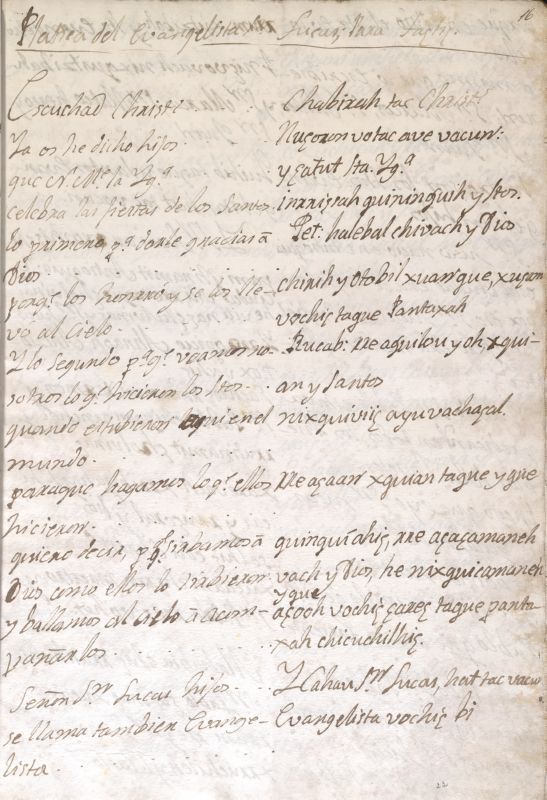 16
Platica del Evangelista Sn Lucas, Para
Escuchad Christi
Ya os he dicho hijos.
que Na. Me. la Yga.
celebra las fiestas de los Santos.
lo primero pa. darle gracias â
Dios
porqe. los honrró y se los lle-
vó al Cielo.
Y lo segundo pa. qe. veamos no-
sotros lo qe. hicieron los Stos.
quando estubieron aqui en el
mundo.
paraque hagamos lo qe. ellos
hicieron.
quiero decir, pa. qe. sirbamos â
Dios como ellos lo sirbieron
y ballamos al Cielo â acom-
pañarlos.
Señor Sn. Lucas hijos.
se llama tambien Evange-
lista.
Chabirah tac Christi
Nuçoron votac ave vacun:
y çatut Sta. Yga.
inrriҫah quininquih y Stos.
Pet. halebal chivach y Dios
chirih y Otobil xuarrque, xuçam
vochiҫ taque Pantaxah
Rucab: rre aquilou y oh xqui-
an y Santos
nixquiviiҫ ayu vachaҫal.
rre açaan xquian taque y que
quinquiahiҫ, rre açaçamaneh
vach y Dios, he nixquiçamaneh
y que
açoch vochiҫ çareҫ taque panta-
xah chicuchilhiҫ.
Y Cahau Sn. Lucas, hat tac vacun
Evangelista vochiҫ bi
22